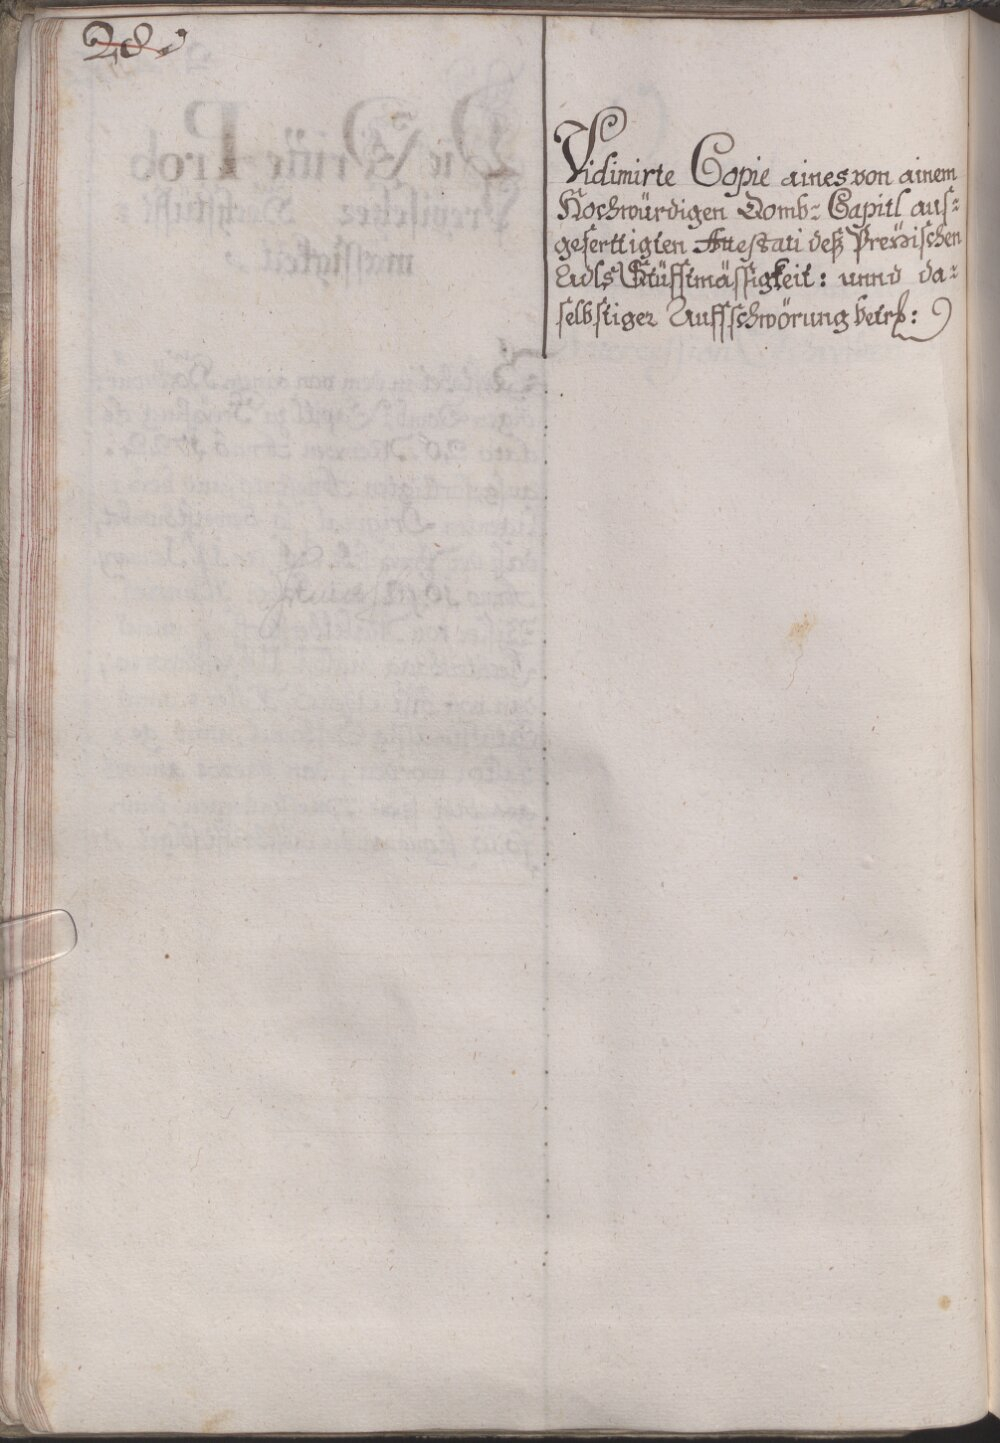 28.
Vidimirte Copie aines von ainem
Hochwürdigen Domb- Capitl aus-
geferttigten Attestati deß Preÿsischen
Adls Stüfftmässigkeit: unnd da-
selbstiger Auffschwörung betrf: